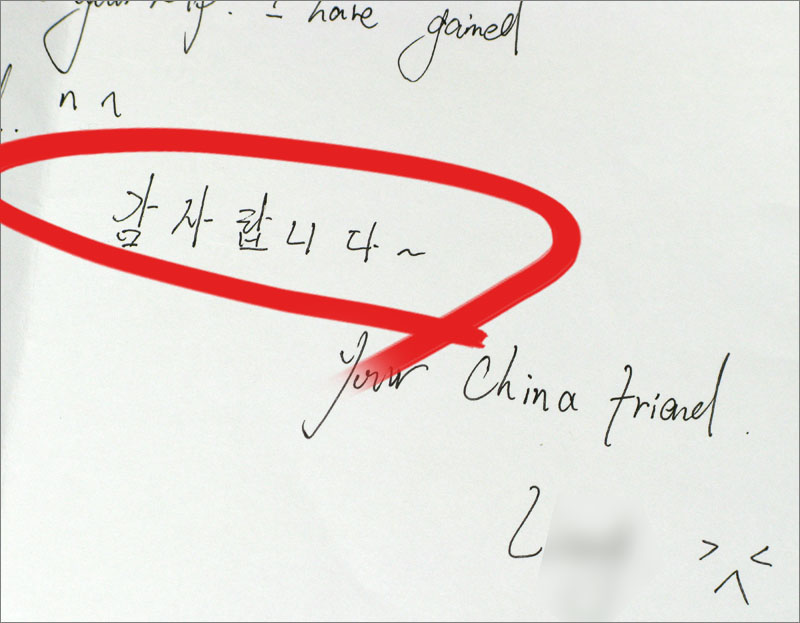 your help. I have gained
.. n n
감자랍니다~
Your China friend.
L
> <
^